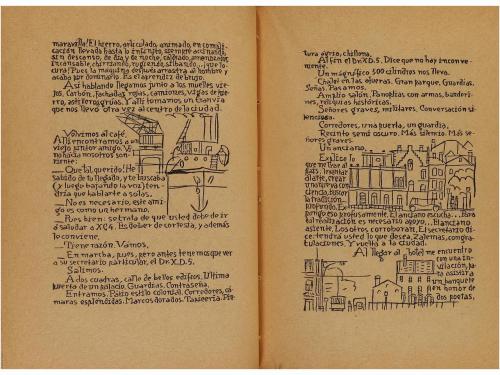 maravilla! El hierro, articulado, animado, en compli-
cación llevada hasta lo infinito, siempre accionando,
sin descanso, de día y de noche, calorado, amenazante
incansable, chirriando, rugiendo, silbando... ¡que lo-
cura! Pues la maquina despues arrastra al hombre y
acaba por dominarlo. Es el aprendiz de brujo.
Así hablando llegamos junto a los muelles vie-
jos. Carbón, fachadas rojas, camiones, vigas de hie-
rro, astilleros, grúas. Y allí tomamos un tranvía
que nos llevó otra vez al centro de la ciudad.
Volvimos al café.
Allí encontramos a un
viejo señor amigo. Vi-
no hacia nosotros son-
riente:
— Que tal, querido! He
sabido de tu llegada, y te buscaba
(Y luego bajando la voz) ten-
dría que hablarte a solas.
— No es necesario, este ami-
go es como un hermano.
— Pues bien: se trata de que usted debe de ir
á saludar a XG4. Es deber de cortesía, y además
le conviene.
— Tiene razón. Vamos.
— En marcha, pues, pero antes tenemos que ver
a su secretario particular, el Dr. X.D.S.
Salimos.
A dos cuadras, calle de bellos edificios. Ultima
puerta de un palacio. Guardias. Contraseña.
Entramos. Patio estilo colonial. Corredores, cá-
maras esplendidas. Marcos dorados. Tapicería. Pin-
tura agria, chillona.
Al fin el Dr. X.D.S. Dice que no hay inconve-
niente.
Un magnífico 500 cilindros nos lleva.
Chalet en las afueras. Gran parque. Guardias.
Señas. Pasamos.
Amplio salón. Panoplias con armas, bande-
reines, reliquias históricas.
Señores graves, militares. Conversación si-
lenciosa.
Corredores, una puerta, un guardia.
Recinto semi oscuro. Más silencio. Más se-
ñores graves.
Un anciano.
Explico lo
que me trae al
país: levantar
el arte, crear
una nueva con-
ciencia, buscar
la tradición
profunda. Ex-
pongo eso profusamente. El anciano escucha... Para
tal realización es necesario apoyo... El anciano
asiente. Los otros, corroboran. El secretario di-
ce: tendrá usted lo que desea. Zalemas, congra-
tulaciones. Y vuelta a la ciudad.
Al llegar al hotel me encuentro
con una in-
vitación, pa-
ra asistir a
un banquete
en honor de
dos poetas,